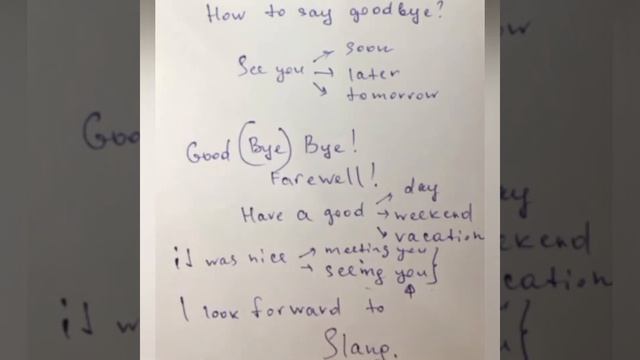 How to say goodbye?
soon
See you → later
tomorrow
Good (Bye) Bye!
Farewell!
day
Have a good → weekend
vacation
it was nice → meeting you
→ seeing you
I look forward to
Slang.